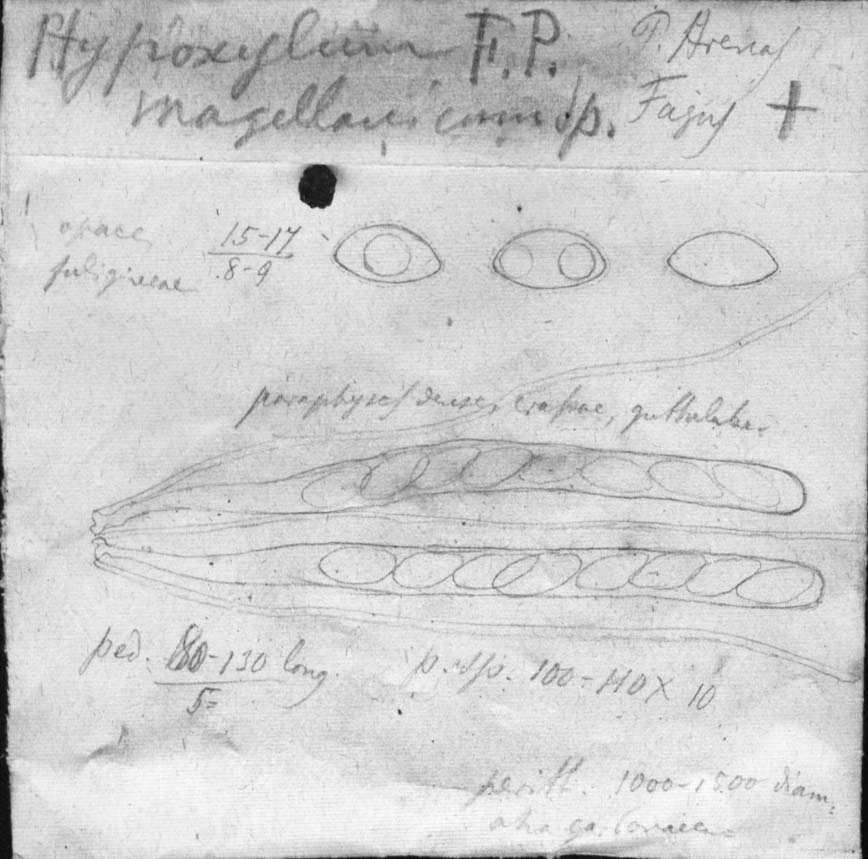 Hypoxylum F.P. P. Arenas
magellanicum Sp. Fagus +
opacae, 15-17
fuligineae 8-9
paraphyses densae, crassae, guttulatae.
ped. 80-130 long
5=
p. sp. 100-110 X 10
perith. 1000-1500 diam.
atra